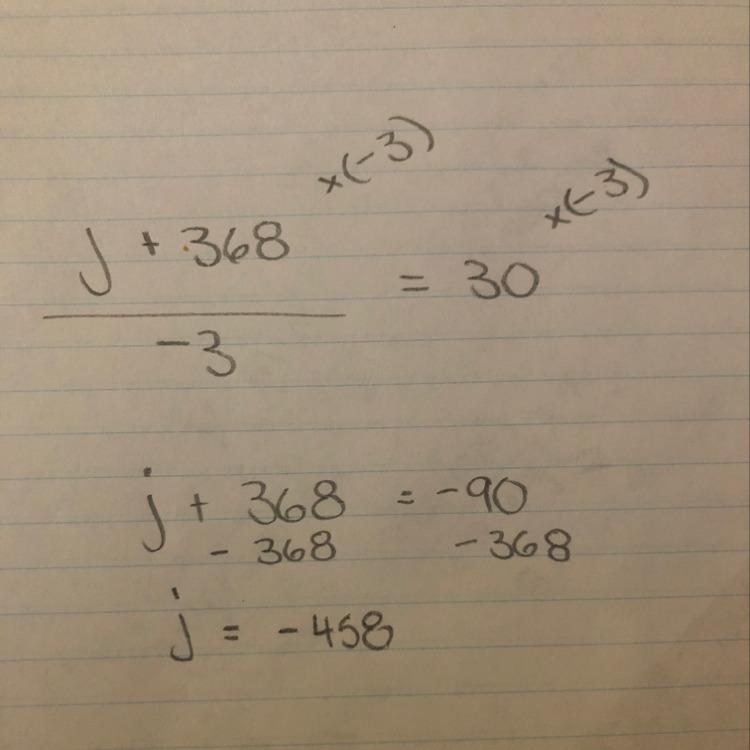 ×(-3) ×(-3)
j + 368 = 30
-3
j + 368 = -90
- 368 -368
j = -458